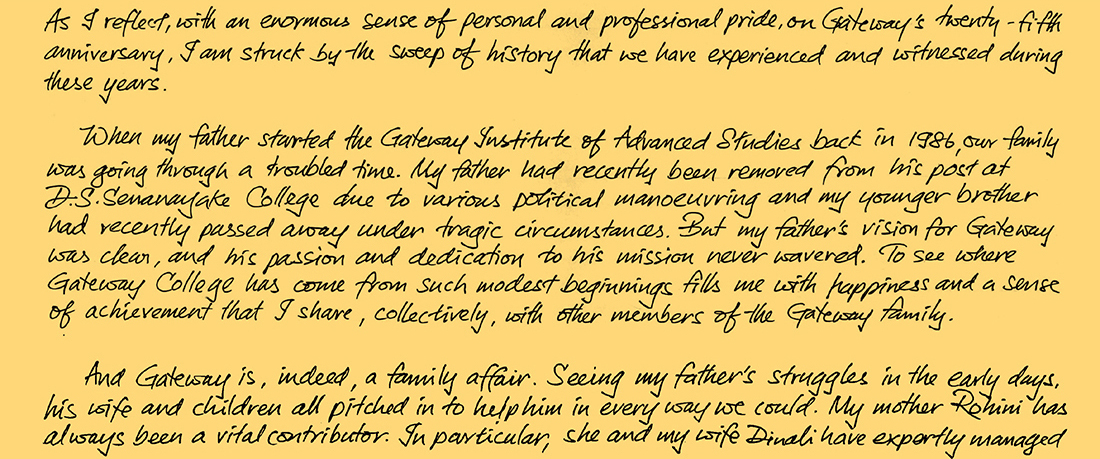 As I reflect, with an enormous sense of personal and professional pride, on Gateway's twenty-fifth
anniversary, I am struck by the sweep of history that we have experienced and witnessed during
these years.
When my father started the Gateway Institute of Advanced Studies back in 1986, our family
was going through a troubled time. My father had recently been removed from his post at
D.S. Senanayake College due to various political manoeuvring and my younger brother
had recently passed away under tragic circumstances. But my father's vision for Gateway
was clear, and his passion and dedication to his mission never wavered. To see where
Gateway College has come from such modest beginnings fills me with happiness and a sense
of achievement that I share, collectively, with other members of the Gateway family.
And Gateway is, indeed, a family affair. Seeing my father's struggles in the early days,
his wife and children all pitched in to help him in every way we could. My mother Rohini has
always been a vital contributor. In particular, she and my wife Dinali have expertly managed